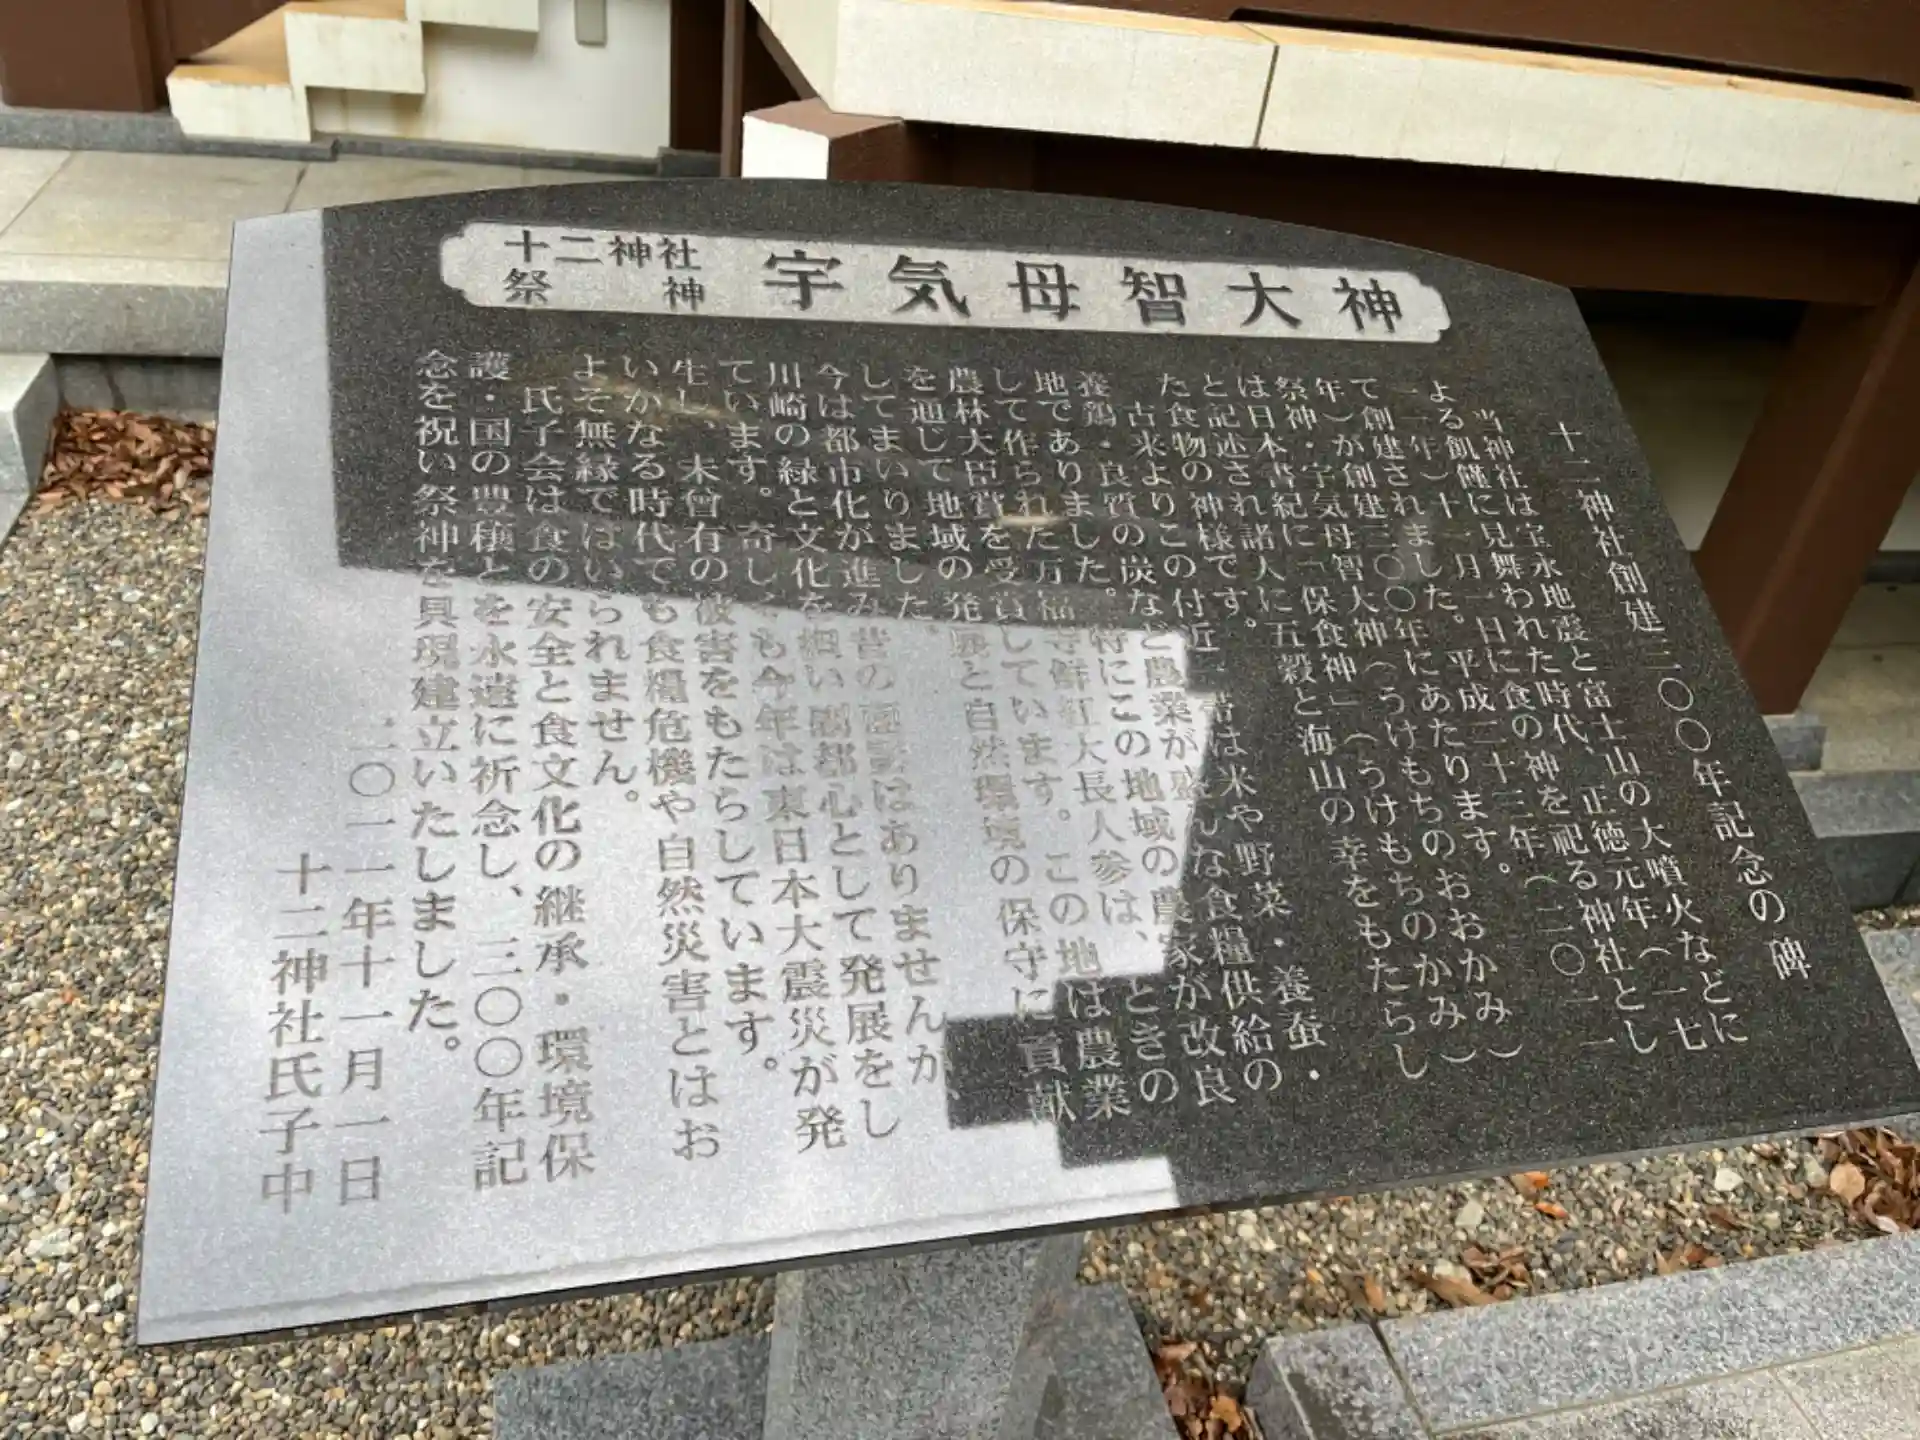 十二神社
祭神
宇気母智大神
十二神社創建三〇〇年記念の碑
当神社は宝永地震と富士山の大噴火などに
よる飢饉に見舞われた時代、正徳元年（一七
一一年）十一月一日に食の神を祀る神社とし
て創建されました。平成二十三年（二〇一一
年）が創建三〇〇年にあたります。
祭神・宇気母智大神（うけもちのおおかみ）
は日本書紀に「保食神」（うけもちのかみ）
と記述され諸人に五穀と海山の幸をもたらし
た食物の神様です。
古来よりこの付近一帯は米や野菜・養蚕・
養鶏・良質の炭など農業が盛んな食糧供給の
地でありました。特にこの地域の農家が改良
して作られた万福寺鮮紅大長人参は、ときの
農林大臣賞を受賞しています。この地は農業
を通して地域の発展と自然環境の保守に貢献
してまいりました。
今は都市化が進み昔の面影はありませんが、
川崎の緑と文化を担い副都心として発展をし
ています。奇しくも今年は東日本大震災が発
生し、未曾有の被害をもたらしています。
いかなる時代でも食糧危機や自然災害とはお
よそ無縁ではいられません。
氏子会は食の安全と食文化の継承・環境保
護・国の豊穣とを永遠に祈念し、三〇〇年記
念を祝い祭神を具現建立いたしました。
二〇一一年十一月一日
十二神社氏子中